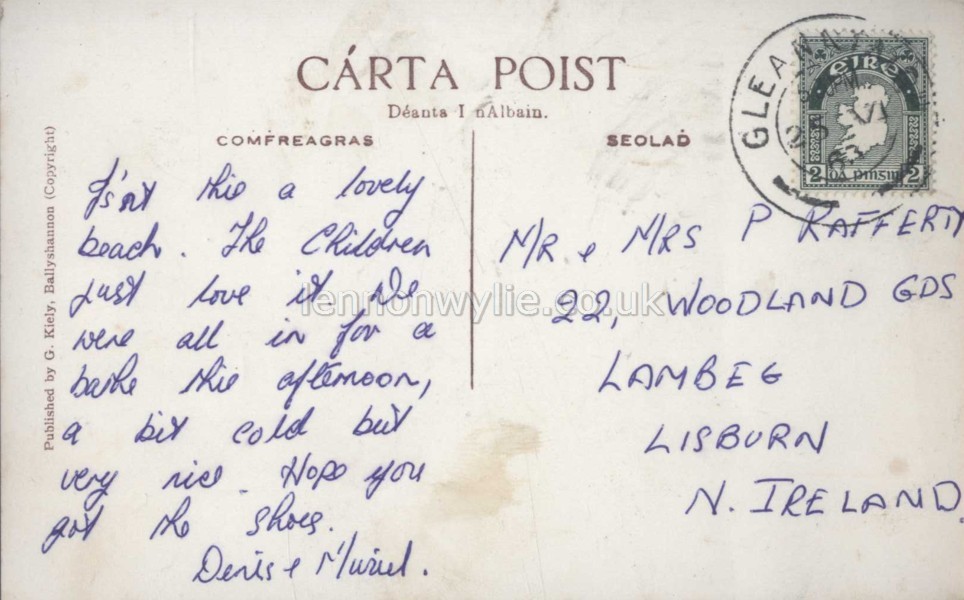 CÁRTA POIST
Déanta I nAlbain.
COMFREAGRAS
SEOLAḊ
Published by G. Kiely, Ballyshannon (Copyright)
Isn't this a lovely
beach. The Children
just love it We
were all in for a
bathe this afternoon,
a bit cold but
very nice. Hope you
got the shoes.
Denis & Muriel.
GLEANN
éire
2 Dá pinsin 2
MR & MRS P RAFFERTY
22, WOODLAND GDS
LAMBEG
LISBURN
N. IRELAND.
lennonwylie.co.uk